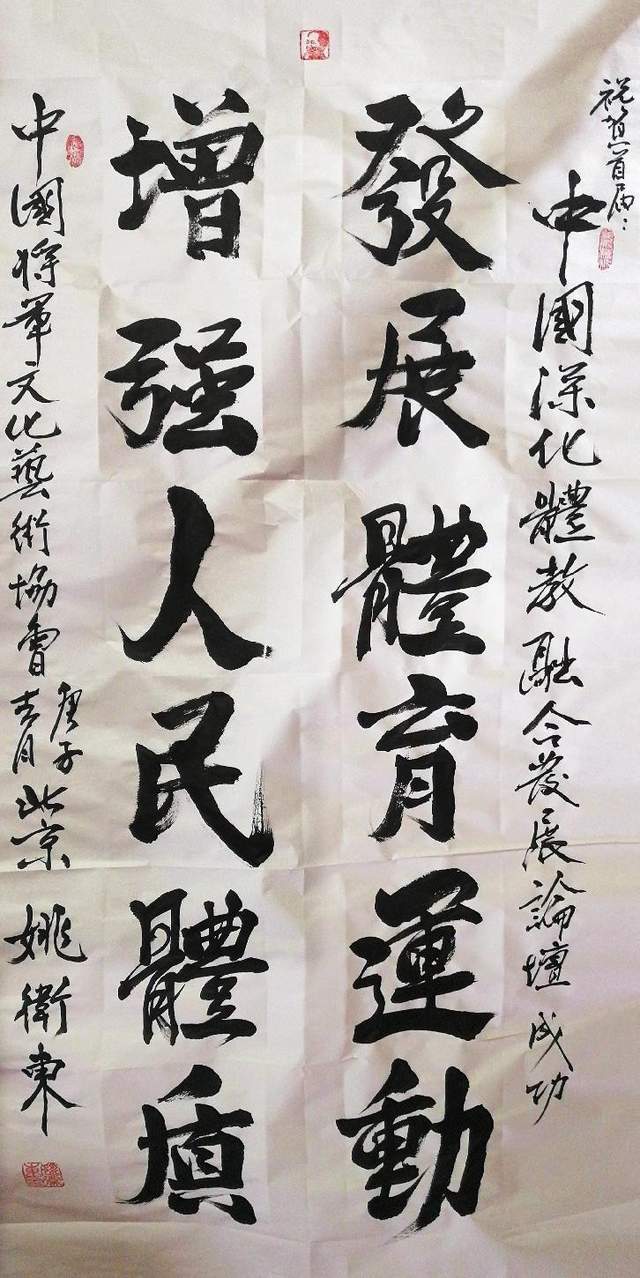 祝賀首届:
中國深化體教融合發展論壇成功
發展體育運動
增强人民體質
中國將軍文化藝術協會
庚子
北京 姚衛東